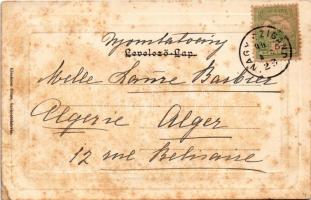 Nyomtatvány
Levelező-Lap.
Melle Laure Barbier
Algerie Alger
12 rue Belisaire